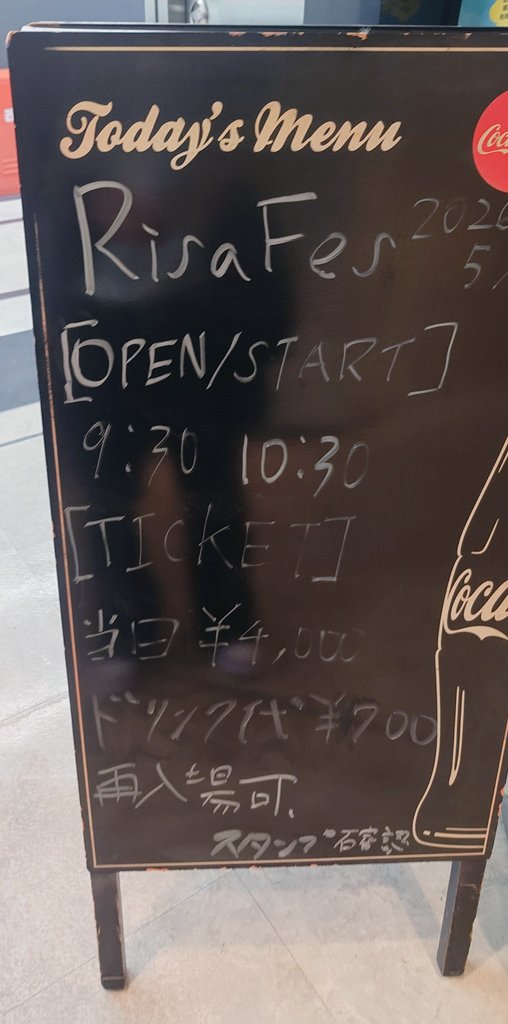 Today's Menu
RisaFes 2026
5/
[OPEN/START]
9:30 10:30
[TICKET]
当日 ¥4,000
ドリンク代 ¥700
再入場可.
スタンプ確認
Coca